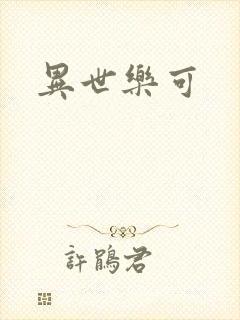 異世樂可
許鵑君